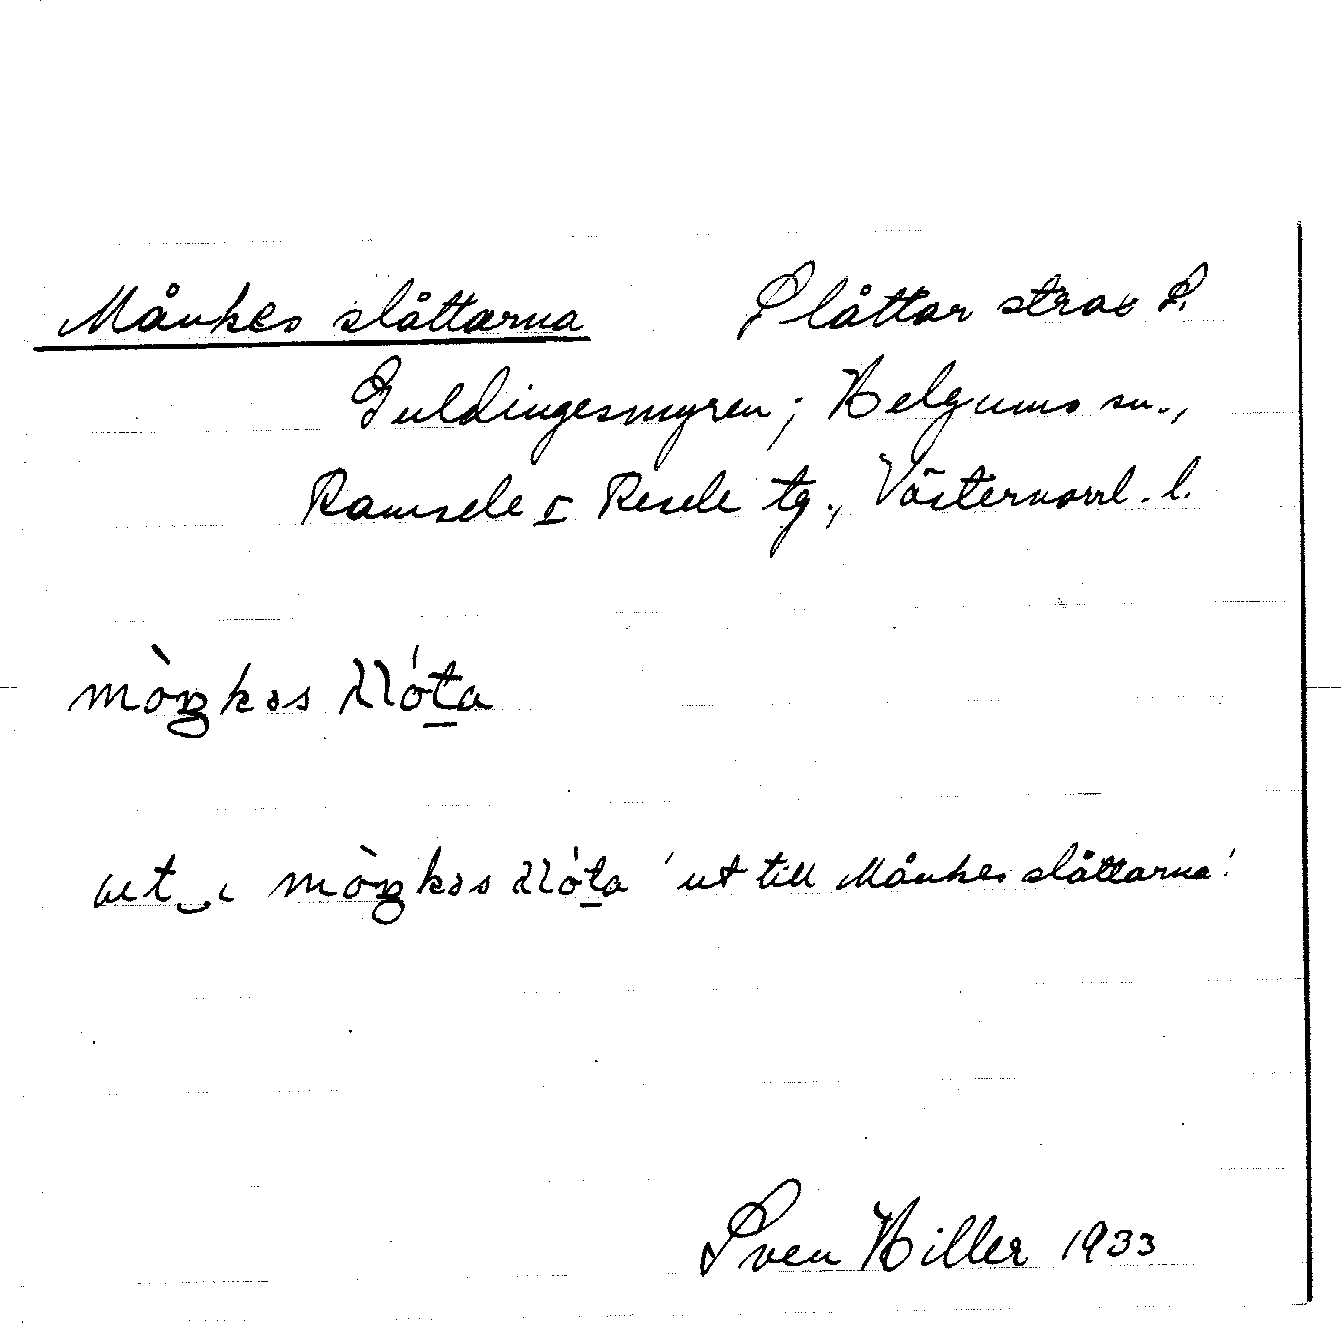 Månkes slåttarna Slåttar strax S.
Guldingesmyren; Helgums sn.,
Ramsele I Resele tg., Västernorrl. l.
mòŋkəs
mòŋkəs 'ut till Månkes slåttarna'
Sven Hiller 1933